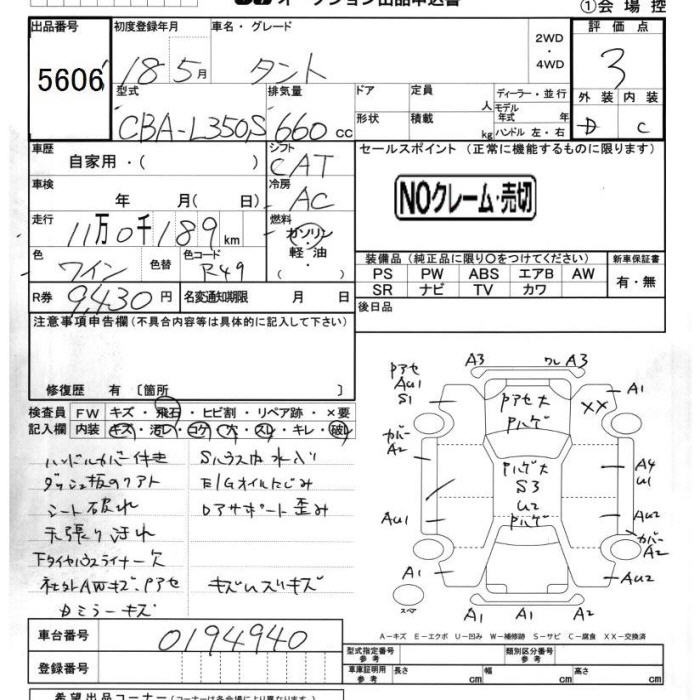 オークション出品申込書
①会場控
出品番号 初度登録年月 車名・グレード 2WD ・ 4WD 評価点
5606 18 5月 タント 3
型式 排気量 ドア 定員 人 ディーラー・並行 外装 内装
CBA-L350S 660 cc 形状 積載 kg モデル年式 年 D C
ハンドル 左・右
車歴 自家用・( ) シフト CAT セールスポイント (正常に機能するものに限ります)
車検 年 月( 日) 冷房 AC
NOクレーム・売切
走行 11万0千189km 燃料 ガソリン・軽油・( )
色 ワイン 色替 色コード R49
装備品(純正品に限り○をつけてください) 新車保証書
PS PW ABS エアB AW 有・無
SR ナビ TV カワ
R券 9,430円 名変通知期限 月 日 後日品
注意事項申告欄(不具合内容等は具体的に記入して下さい)
修復歴 有〔箇所 〕
検査員記入欄 FW キズ・飛石・ヒビ割・リペア跡・×要
内装 キズ・汚レ・コゲ・穴・スレ・キレ・破レ
ハンドルカバー付き Sハウス内 水入り
ダッシュ板のリアト E/Gオイルにじみ
シート破れ Dアサポート歪み
天張り汚れ
Fタイヤハウスライナー欠
社外AWキズ、Pアセ キズムズリキズ
Dミラーキズ
A3 ワレ A3
Pアセ AU1 S1
Pアセ大 Pハゲ
XX A1
カバー A2
Pハゲ大 S3 U2 Pハゲ
A4 U1
AU1 AU2
カバー A2
A1 AU2
スペア A1 A1 A2
A-キズ E-エクボ U-凹み W-補修跡 S-サビ C-腐食 XX-交換済
車台番号 0194940
登録番号
型式指定番号 参考 類別区分番号 参考
車庫証明用 参考 長さ cm 幅 cm 高さ cm
希望出品コーナー(コーナーは各会場により異なります)